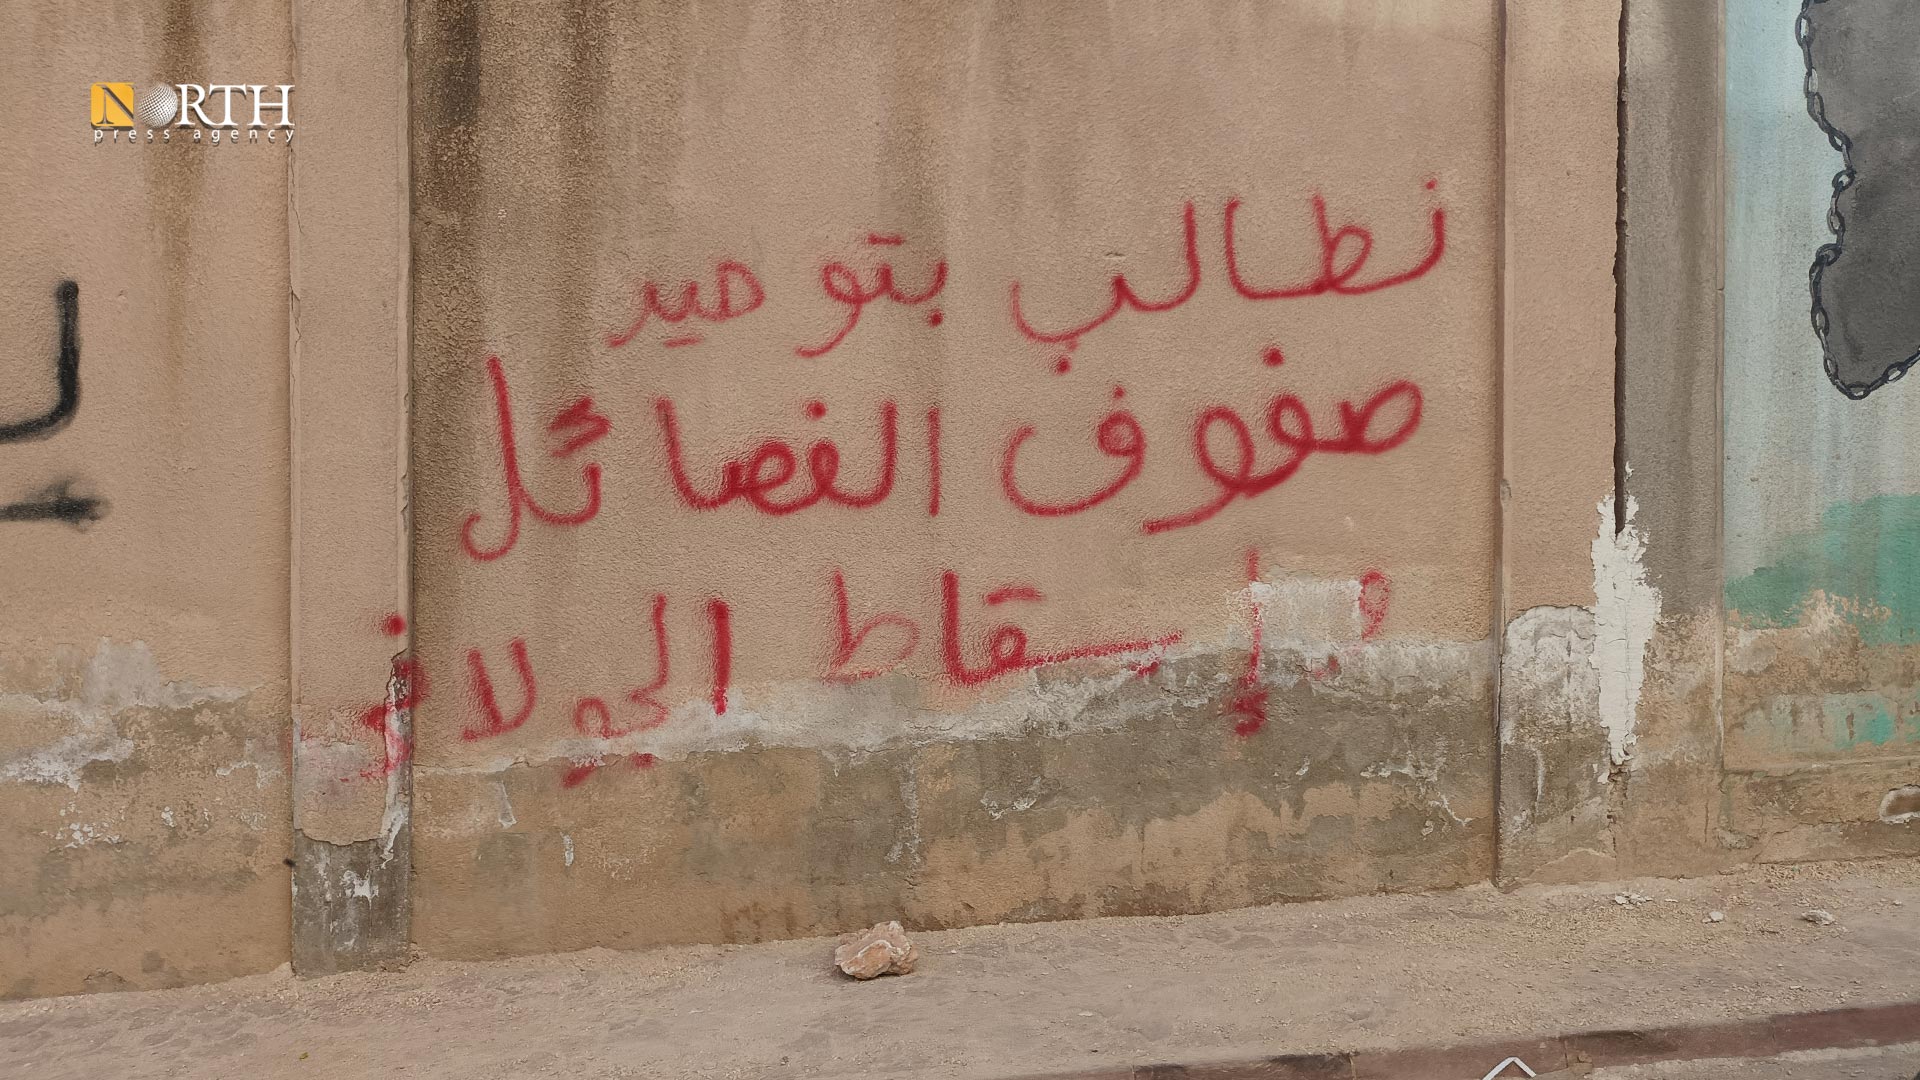 NORTH
press agency
نطالب بتوحيد
صفوف الفصائل
وإسقاط الجولاني